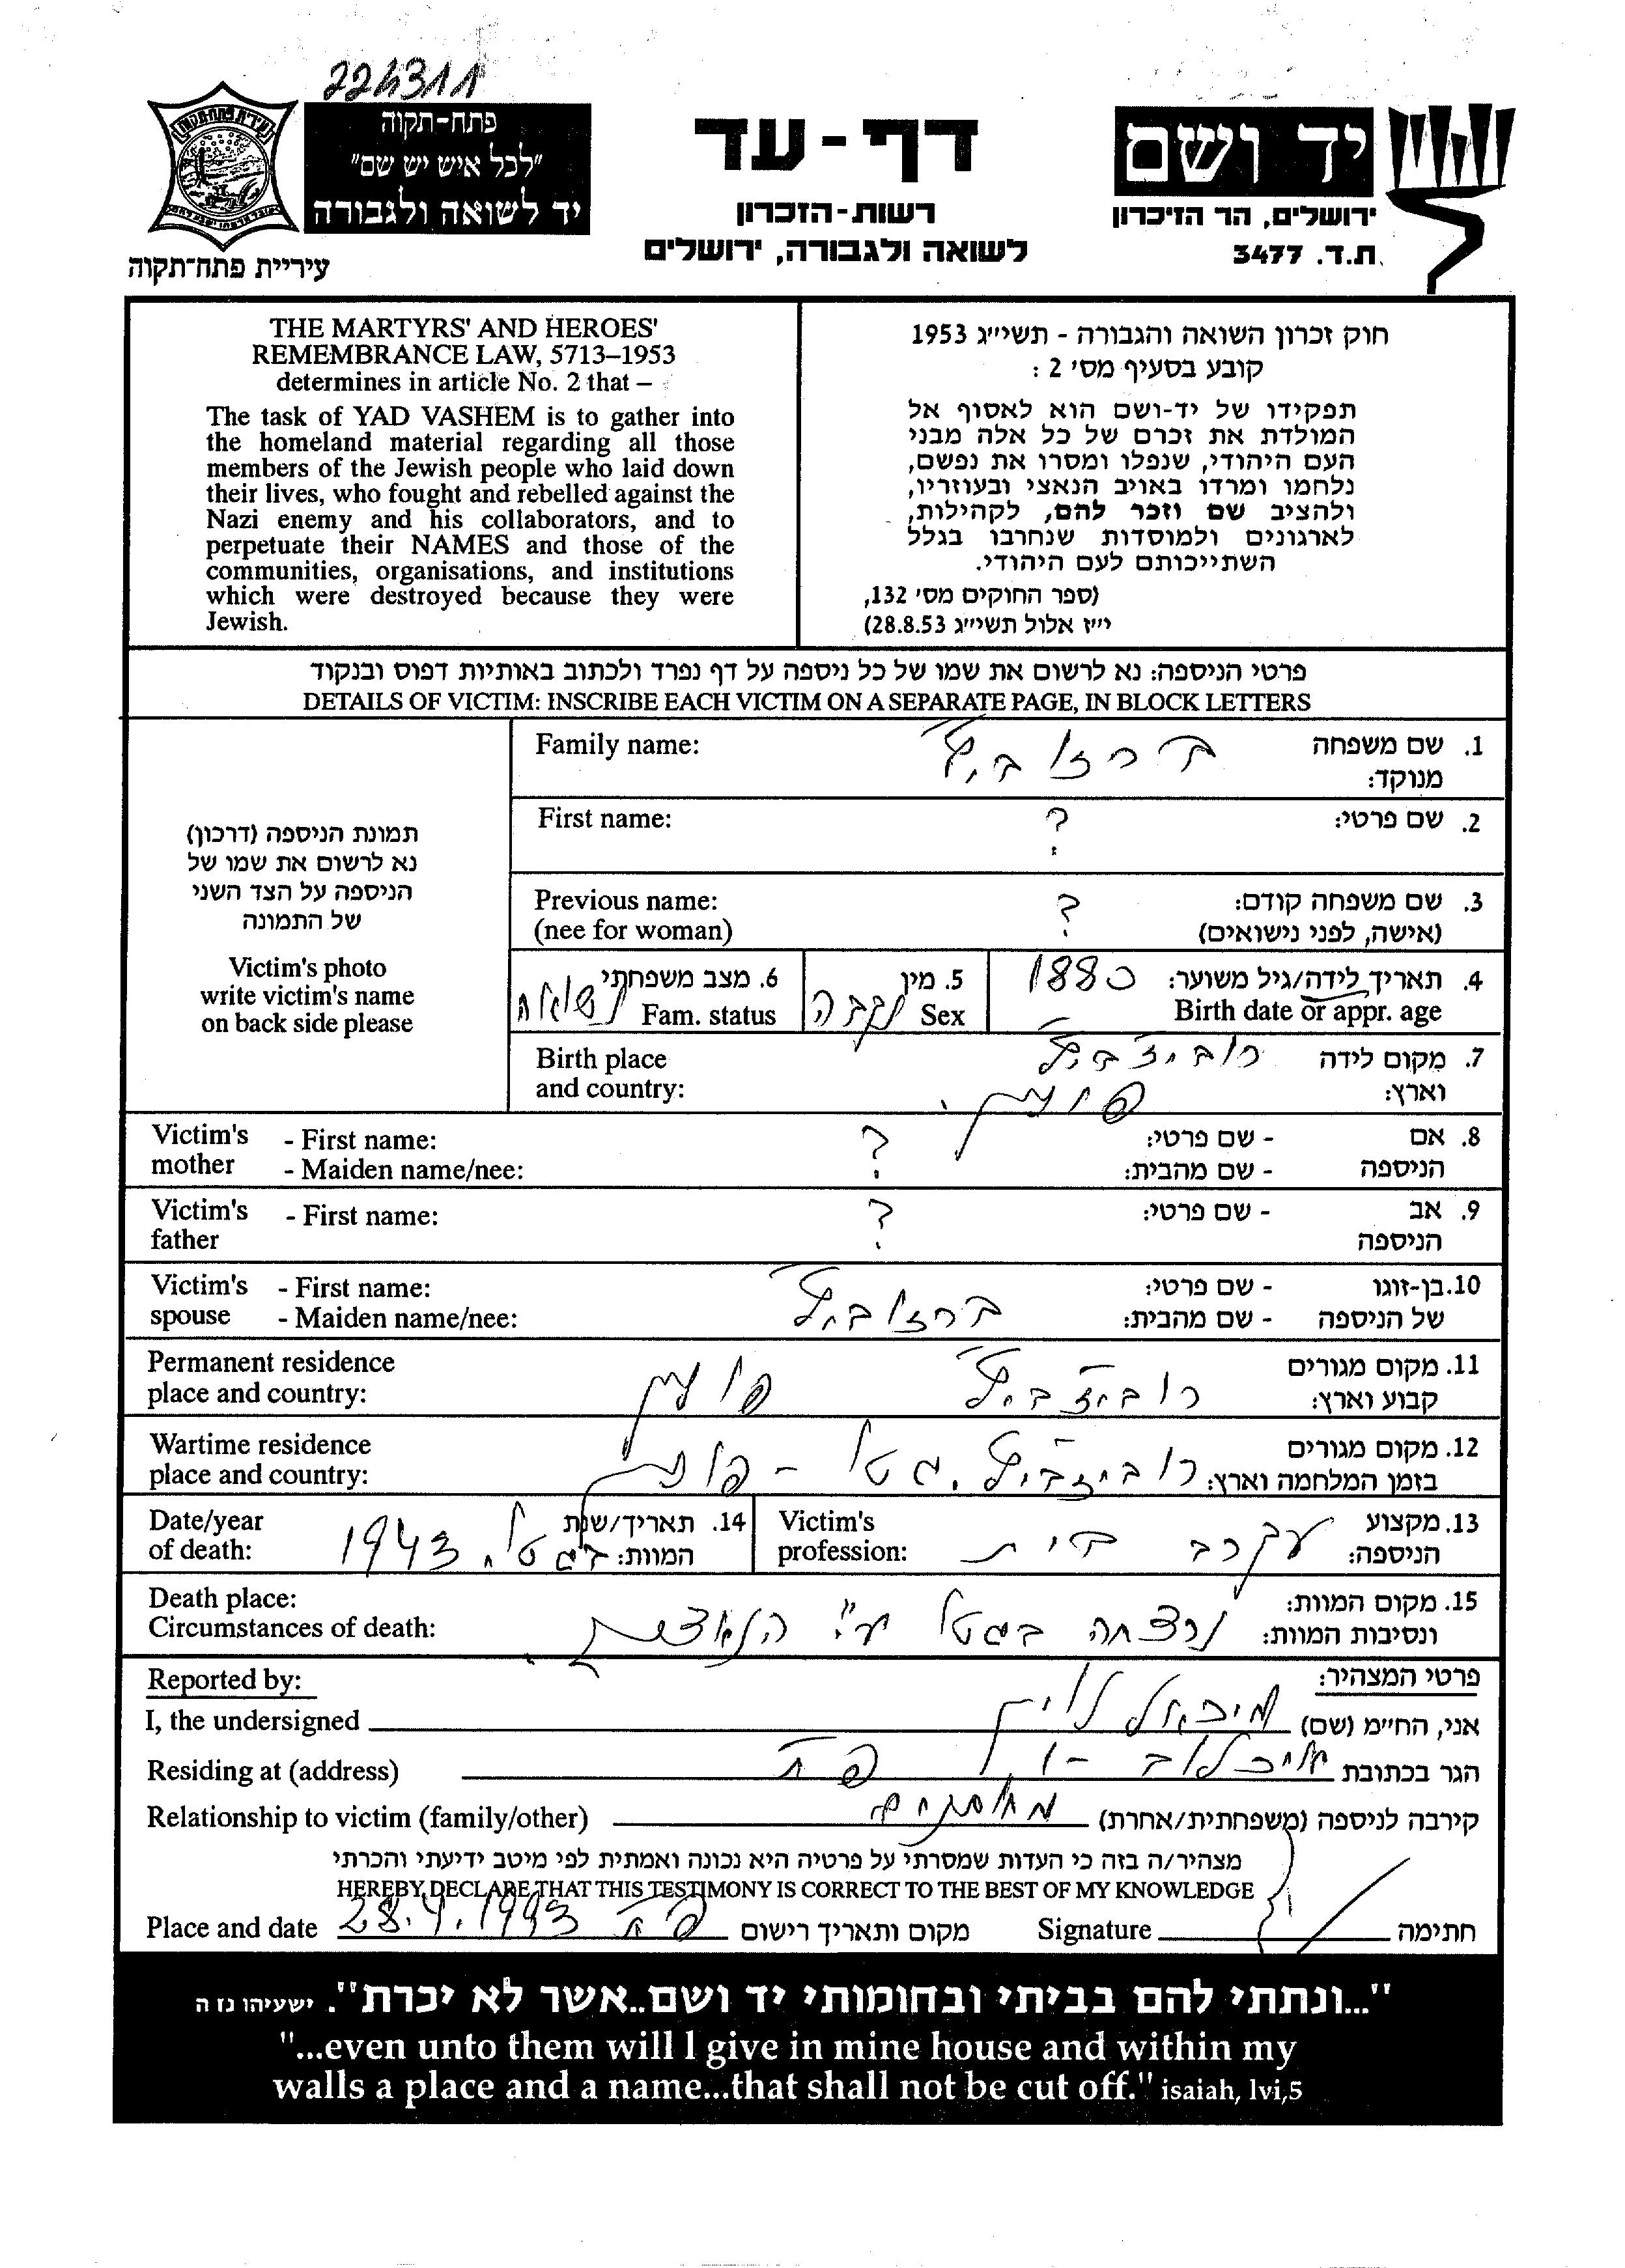 224311
פתח-תקוה
"לכל איש יש שם"
יד לשואה ולגבורה
עיריית פתח-תקוה
דף-עד
רשות-הזכרון
לשואה ולגבורה, ירושלים
יד ושם
ירושלים, הר הזיכרון
ת.ד. 3477
THE MARTYRS' AND HEROES'
REMEMBRANCE LAW, 5713–1953
determines in article No. 2 that –
The task of YAD VASHEM is to gather into
the homeland material regarding all those
members of the Jewish people who laid down
their lives, who fought and rebelled against the
Nazi enemy and his collaborators, and to
perpetuate their NAMES and those of the
communities, organisations, and institutions
which were destroyed because they were
Jewish.
חוק זכרון השואה והגבורה - תשי״ג 1953
קובע בסעיף מס׳ 2 :
תפקידו של יד-ושם הוא לאסוף אל
המולדת את זכרם של כל אלה מבני
העם היהודי, שנפלו ומסרו את נפשם,
נלחמו ומרדו באויב הנאצי ובעוזריו,
ולהציב שם וזכר להם, לקהילות,
לארגונים ולמוסדות שנחרבו בגלל
השתייכותם לעם היהודי.
(ספר החוקים מס׳ 132,
י״ז אלול תשי״ג 28.8.53)
פרטי הניספה: נא לרשום את שמו של כל ניספה על דף נפרד ולכתוב באותיות דפוס ובנקוד
DETAILS OF VICTIM: INSCRIBE EACH VICTIM ON A SEPARATE PAGE, IN BLOCK LETTERS
תמונת הניספה (דרכון)
נא לרשום את שמו של
הניספה על הצד השני
של התמונה
Victim's photo
write victim's name
on back side please
1. שם משפחה
מנוקד:
Family name:
2. שם פרטי: ? First name:
3. שם משפחה קודם: ? Previous name:
(אישה, לפני נישואים) (nee for woman)
4. תאריך לידה/גיל משוער: 1880
Birth date or appr. age
5. מין
Sex נקבה
6. מצב משפחתי
Fam. status נשואה
7. מקום לידה Birth place
וארץ: פולין. and country:
8. אם - שם פרטי: ? Victim's - First name:
הניספה - שם מהבית: mother - Maiden name/nee:
9. אב - שם פרטי: ? Victim's - First name:
הניספה father
10. בן-זוגו - שם פרטי: Victim's - First name:
של הניספה - שם מהבית: spouse - Maiden name/nee:
11. מקום מגורים Permanent residence
קבוע וארץ: פולין place and country:
12. מקום מגורים Wartime residence
בזמן המלחמה וארץ: גטו - פולין place and country:
13. מקצוע Victim's
הניספה: עקרב בית profession:
14. תאריך/שנת Date/year
המוות: בגטו. 1943 of death:
15. מקום המוות: Death place:
ונסיבות המוות: נרצחה בגטו ע"י הנאצים. Circumstances of death:
פרטי המצהיר: Reported by:
אני, החי״מ (שם) מיכאל לוין I, the undersigned
הגר בכתובת פת Residing at (address)
קירבה לניספה (משפחתית/אחרת) Relationship to victim (family/other)
מצהיר/ה בזה כי העדות שמסרתי על פרטיה היא נכונה ואמתית לפי מיטב ידיעתי והכרתי
HEREBY DECLARE THAT THIS TESTIMONY IS CORRECT TO THE BEST OF MY KNOWLEDGE
Place and date 28.4.1993 פת מקום ותאריך רישום Signature חתימה
"...ונתתי להם בביתי ובחומותי יד ושם..אשר לא יכרת". ישעיהו נז ה
"...even unto them will I give in mine house and within my
walls a place and a name...that shall not be cut off." isaiah, lvi,5